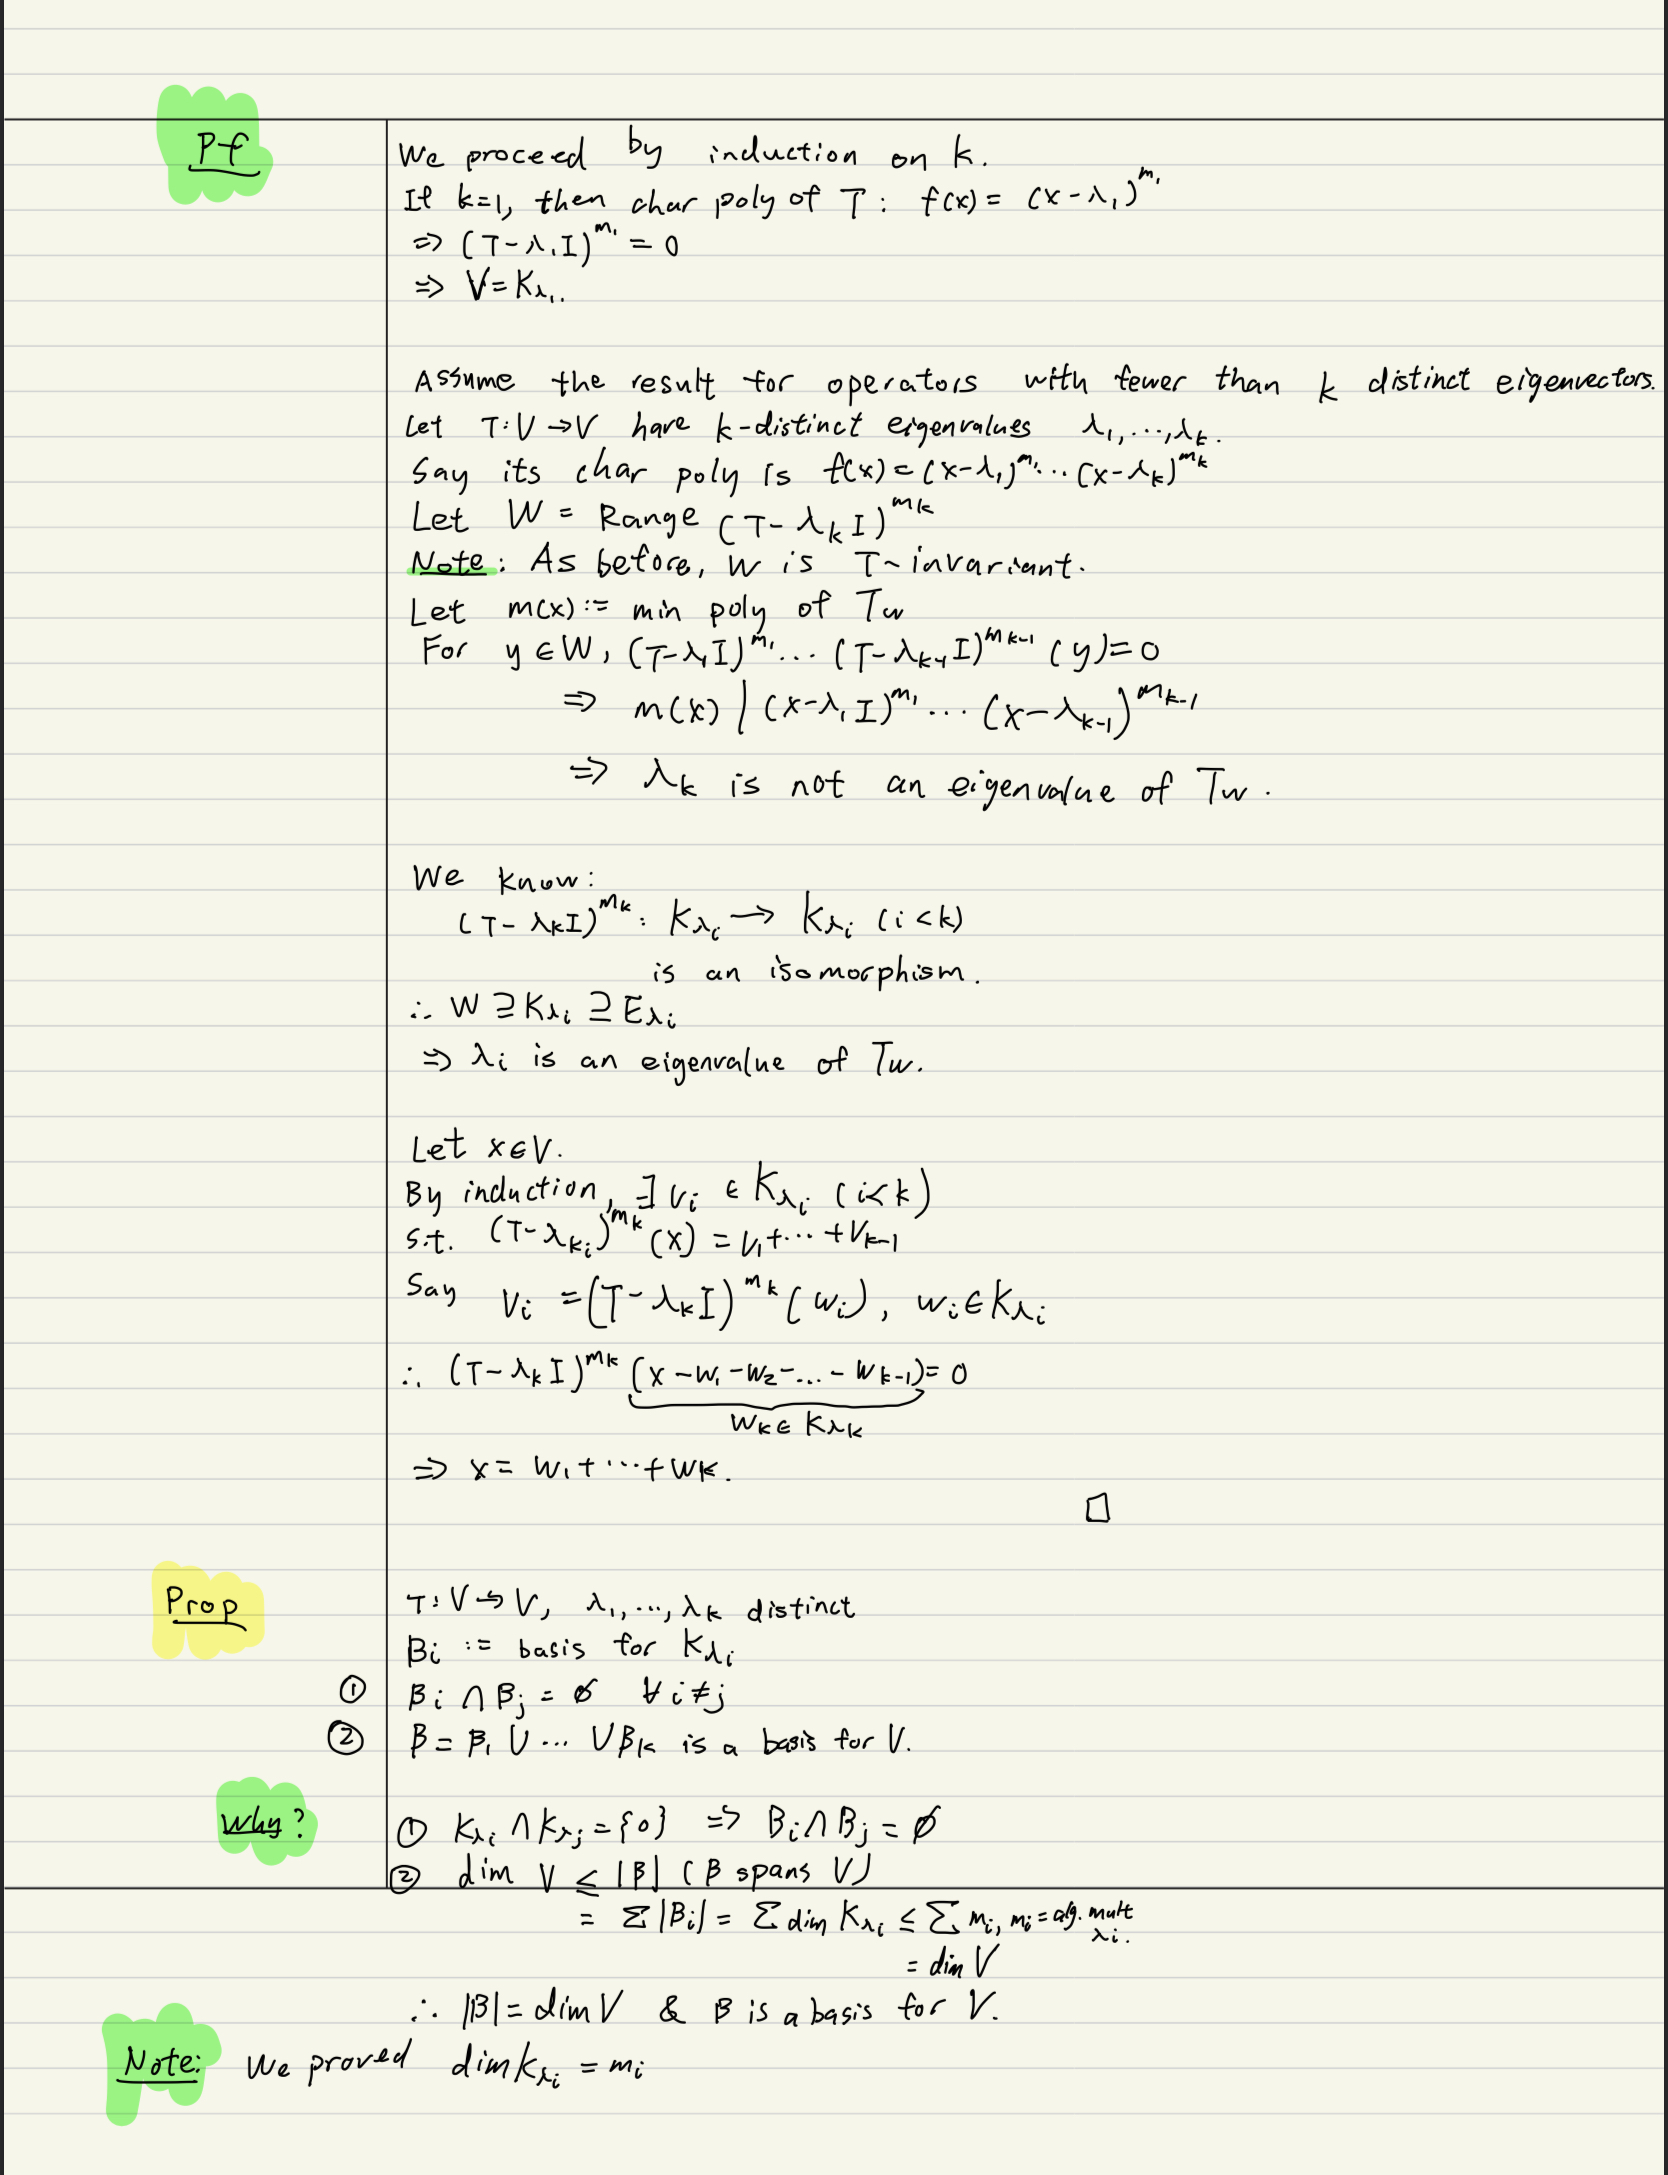 Pf
We proceed by induction on k.
If k=1, then char poly of T: f(x) = (x-λ₁)^m₁
⇒ (T-λ₁I)^m₁ = 0
⇒ V = K_λ₁.
Assume the result for operators with fewer than k distinct eigenvectors.
Let T:V→V have k-distinct eigenvalues λ₁,...,λ_k.
Say its char poly is f(x)=(x-λ₁)^m₁...(x-λ_k)^m_k
Let W = Range (T-λ_k I)^m_k
Note: As before, W is T-invariant.
Let m(x) := min poly of T_W
For y∈W, (T-λ₁I)^m₁...(T-λ_k-1 I)^m_k-1 (y)=0
⇒ m(x) | (x-λ₁I)^m₁...(x-λ_k-1)^m_k-1
⇒ λ_k is not an eigenvalue of T_W.
We know:
(T-λ_k I)^m_k: K_λi → K_λi (i<k)
is an isomorphism.
∴ W ⊇ K_λi ⊇ E_λi
⇒ λi is an eigenvalue of T_W.
Let x∈V.
By induction, ∃ vi ∈ K_λi (i<k)
s.t. (T-λ_ki)^m_k (x) = v₁+...+v_k-1
Say vi = (T-λ_k I)^m_k (wi), wi∈K_λi
∴ (T-λ_k I)^m_k (x-w₁-w₂-...-w_k-1)=0
w_k ∈ K_λk
⇒ x = w₁+...+w_k.
□
Prop
T:V→V, λ₁,...,λ_k distinct
βi := basis for K_λi
① βi ∩ βj = ∅ ∀ i≠j
② β = β₁ ∪ ... ∪ β_k is a basis for V.
Why?
① K_λi ∩ K_λj = {0} ⇒ βi ∩ βj = ∅
② dim V ≤ |β| (β spans V)
= Σ|βi| = Σ dim K_λi ≤ Σ mi, mi = alg. mult λi.
= dim V
∴ |β| = dim V & β is a basis for V.
Note: We proved dim K_λi = mi